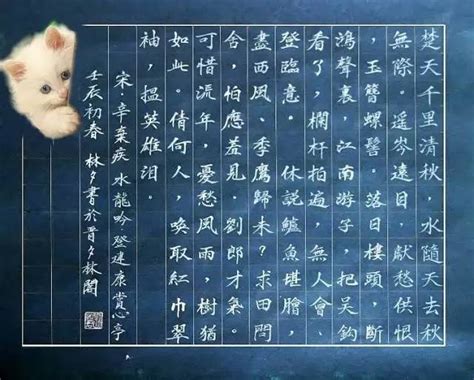 楚天千里清秋，水隨天去秋
無際。遥岑遠目，獻愁供恨
，玉簪螺髻。落日樓頭，斷
鴻聲裏，江南游子，把吴鈎
看了，欄杆拍遍，無人會，
登臨意。 休説鱸魚堪膾，
盡西風、季鷹歸未？求田問
舍，怕應羞見，劉郎才氣。
可惜流年，憂愁風雨，樹猶
如此。倩何人，唤取紅巾翠
袖，揾英雄淚。
宋 辛棄疾 水龍吟 登建康賞心亭
壬辰初春 林夕書於晋夕林閣